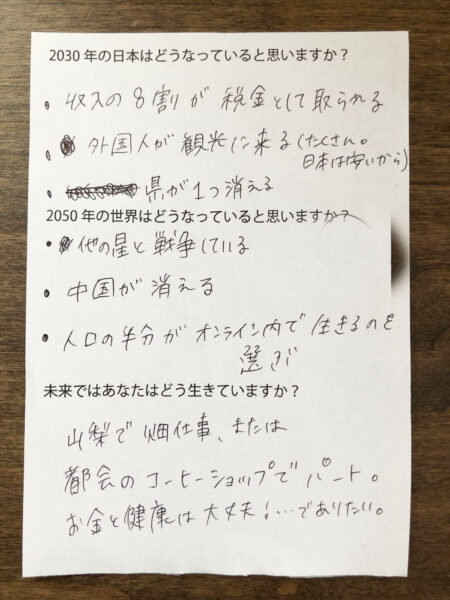 2030 年の日本はどうなっていると思いますか？
・収入の8割が 税金として取られる
・外国人が観光に来る(たくさん。
日本は安いから)
・県が1つ消える
2050 年の世界はどうなっていると思いますか？
・他の星と戦争している
・中国が消える
・人口の半分がオンライン内で生きるのを
選ぶ
未来ではあなたはどう生きていますか？
山梨で畑仕事、または
都会のコーヒーショップでパート。
お金と健康は大丈夫!…でありたい。